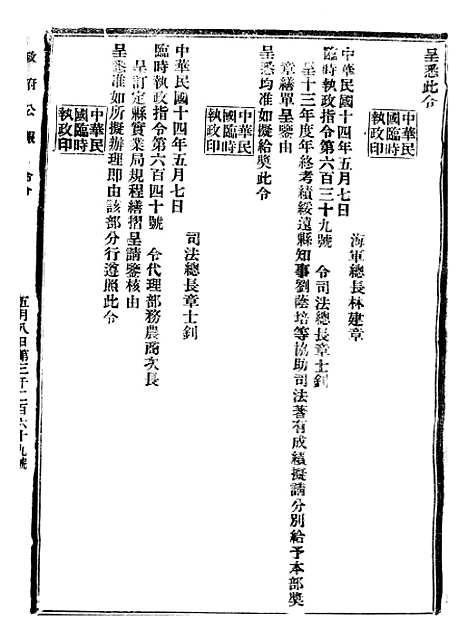 呈悉此令
中華民
國臨時
執政印
海軍總長林建章
中華民國十四年五月七日
臨時執政指令第六百三十九號 令司法總長章士釗
呈十三年度年終考績綏遠縣知事劉蔭培等協助司法著有成績擬請分別給予本部獎
章繕單呈鑒由
呈悉均准如擬給獎此令
中華民
國臨時
執政印
司法總長章士釗
中華民國十四年五月七日
臨時執政指令第六百四十號 令代理部務農商次長
呈訂定縣實業局規程繕摺呈請鑒核由
呈悉准如所擬辦理即由該部分行遵照此令
中華民
國臨時
執政印
政府公報 命令
五月八日第三千二百六十九號